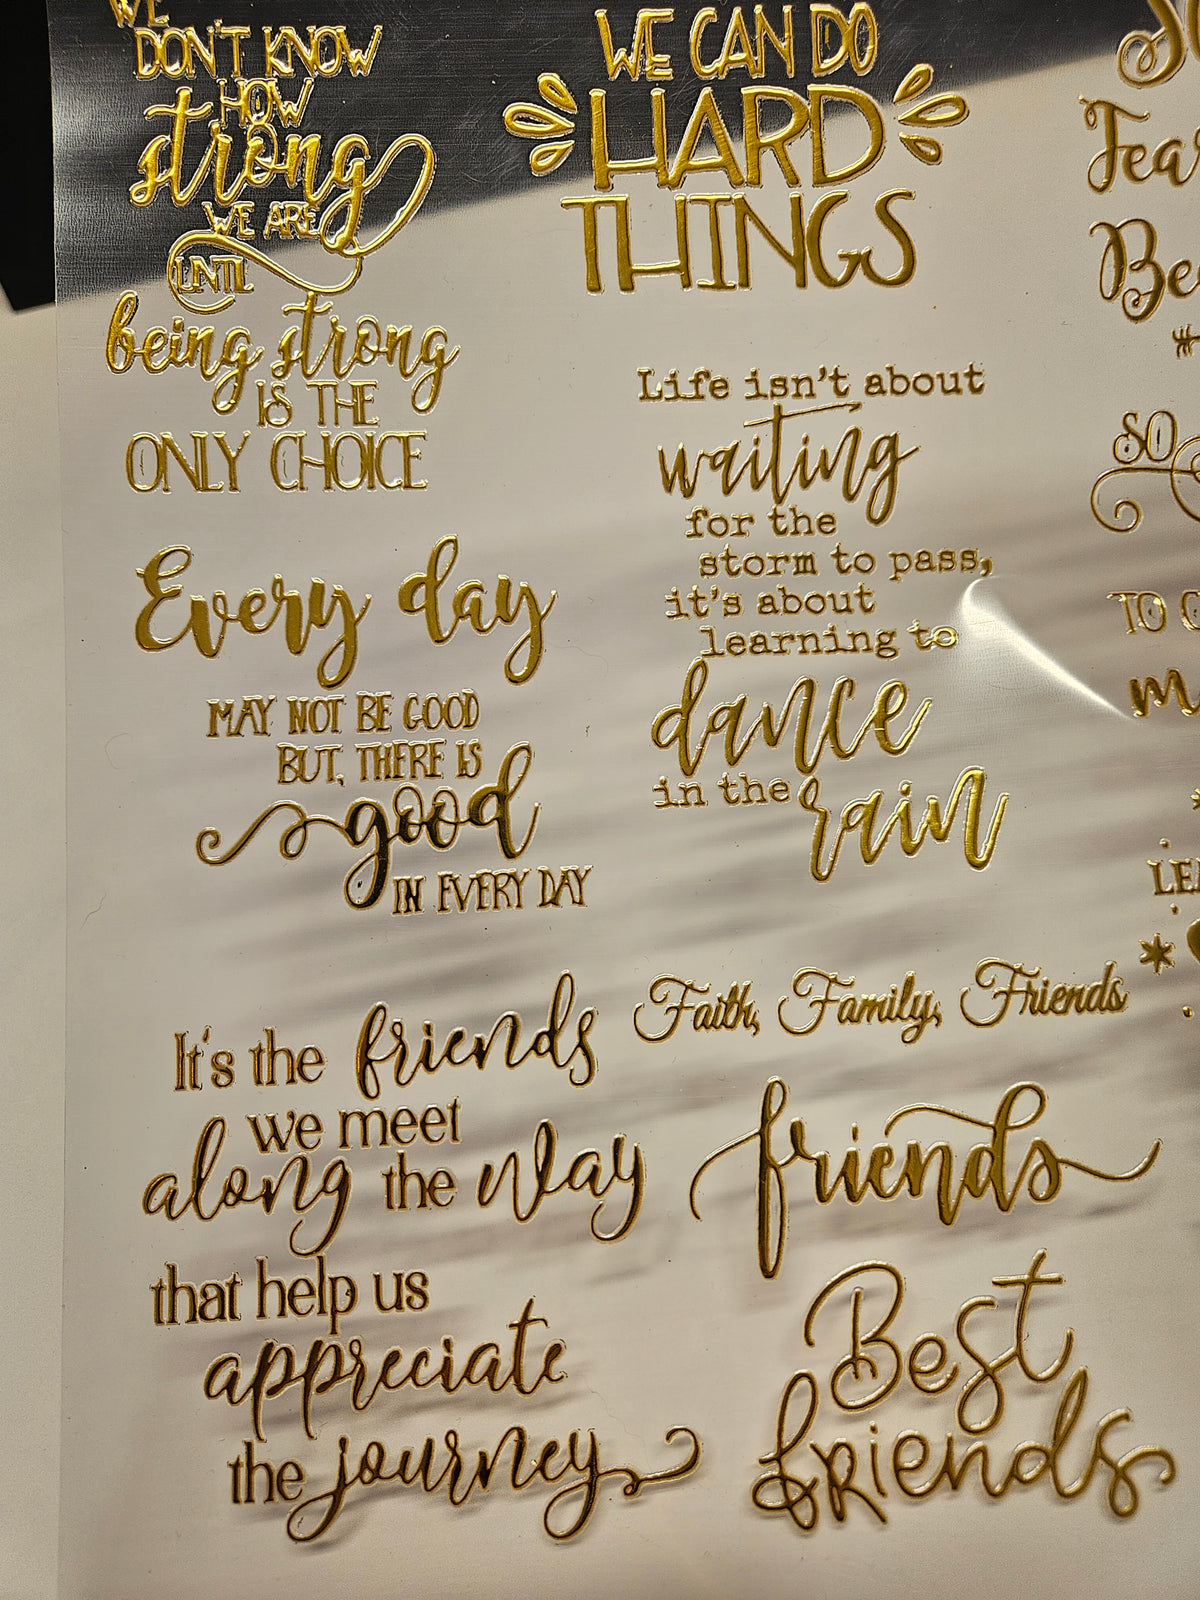 WE
DON'T KNOW
HOW
strong
WE ARE
UNTIL
being strong
IS THE
ONLY CHOICE
WE CAN DO
HARD
THINGS
Every day
MAY NOT BE GOOD
BUT, THERE IS
good
IN EVERY DAY
Life isn't about
waiting
for the
storm to pass,
it's about
learning to
dance
in the rain
It's the friends
we meet
along the way
that help us
appreciate
the journey
Faith, Family, Friends
friends
Best
friends
SO
TO